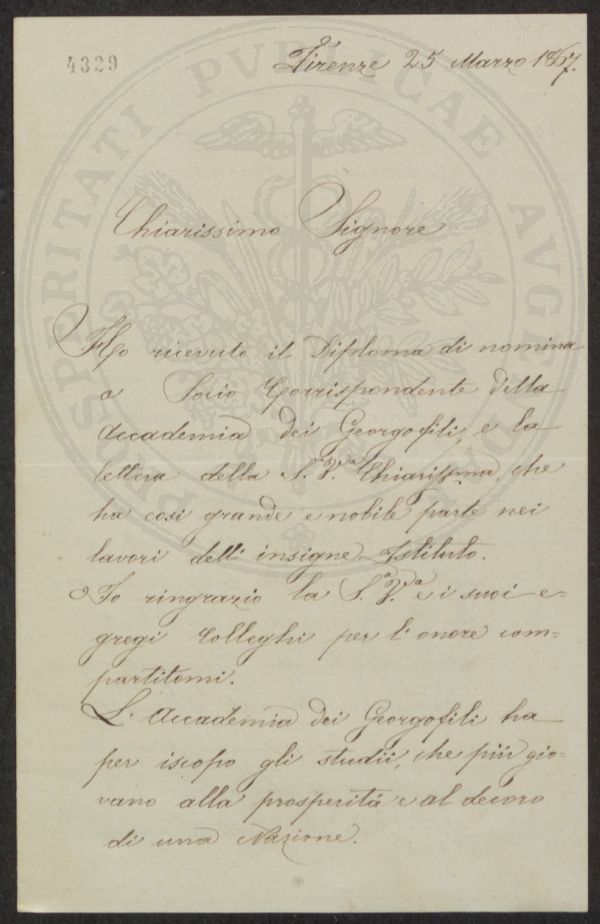 4329
Firenze 25 Marzo 1867.
Chiarissimo Signore
Ho ricevuto il Diploma di nomina
a Socio Corrispondente della
Accademia dei Georgofili, e la
lettera della S.ª V.ª Chiarissima, che
ha così grande e nobile parte nei
lavori dell' insigne Istituto.
Io ringrazio la S.ª V.ª e i suoi e=
gregi Colleghi per l' onore com=
partitomi.
L' Accademia dei Georgofili ha
per iscopo gli studii, che più gio=
vano alla prosperità e al decoro
di una Nazione.
PROSPERITATI PVBLICAE AVGENDAE